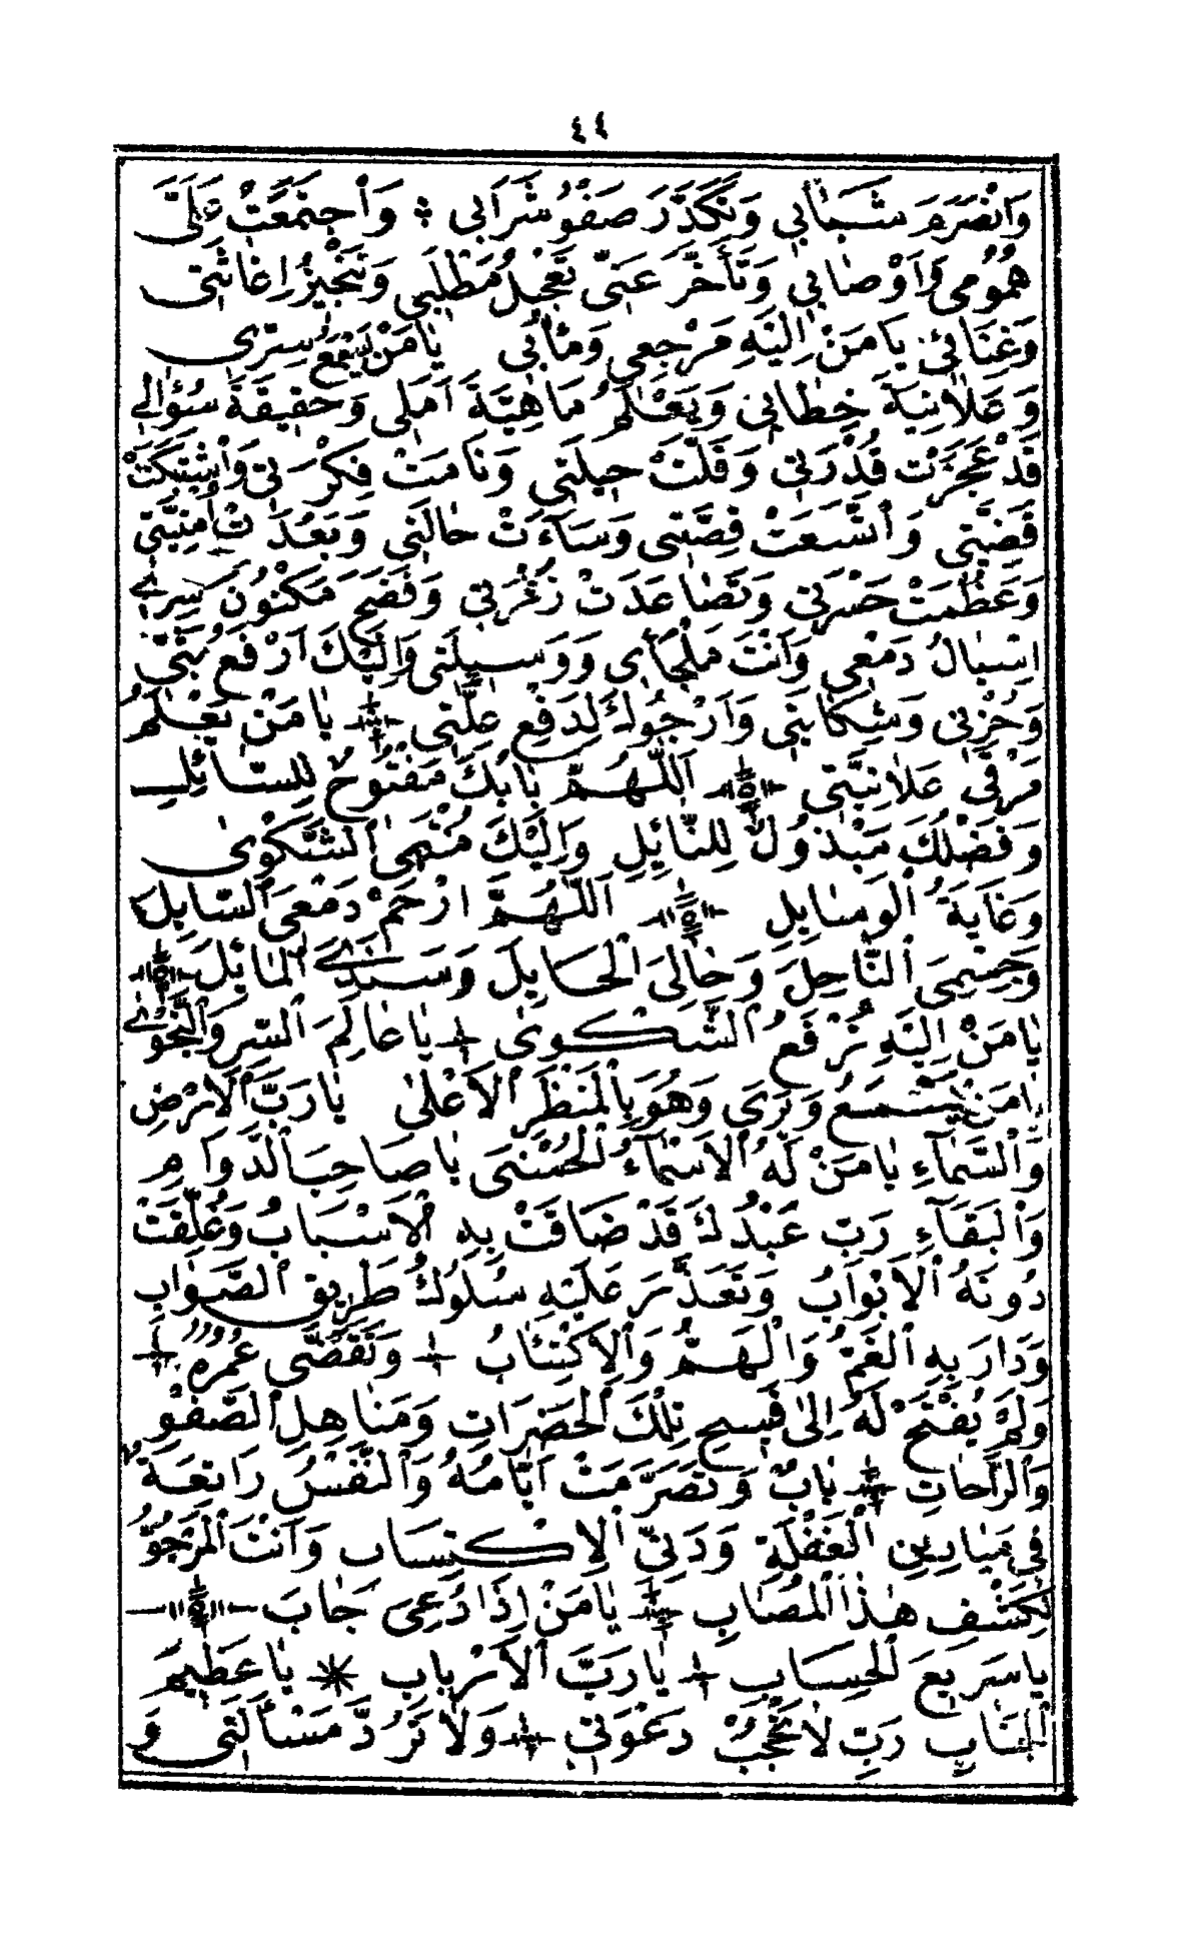 ٤٤
وَانْصَرَمَ شَبَابِي وَتَكَدَّرَ صَفْوُ شَرَابِي ❊ وَاجْتَمَعَتْ عَلَيَّ
هُمُومِي وَاَوْصَابِي وَتَأَخَّرَ عَنِّى تَعْجِيلُ مَطْلَبِي وَتَنْجِيزُ اِغَاثَتِى
وَغِنَائِى يَامَنْ اِلَيْهِ مَرْجِعِي وَمَاٰبِي يَامَنْ يَسْمَعُ سِرِّى
وَعَلَانِيَةَ خِطَابِي وَيَعْلَمُ مَاهِيَّةَ اَمَلِى وَحَقِيقَةَ سُؤَالِي
قَدْ عَجَزَتْ قُدْرَتِى وَقَلَّتْ حِيلَتِي وَنَامَتْ فِكْرَتِى وَاشْتَبَكَتْ
قَضِيَّتِي وَاتَّسَعَتْ قِصَّتِي وَسَآءَتْ حَالَتِي وَبَعُدَتْ اُمْنِيَّتِي
وَعَظُمَتْ حَسْرَتِي وَتَصَاعَدَتْ زَفْرَتِي وَفَضَحَ مَكْنُونَ سِرِّي
اِسْبَالُ دَمْعِي وَاَنْتَ مَلْجَاٰى وَوَسِيلَتِى وَاِلَيْكَ اَرْفَعُ بَثِّي
وَحُزْنِى وَشِكَايَتِي وَاَرْجُوكَ لِدَفْعِ عِلَّتِي ❊ يَامَنْ يَعْلَمُ
سِرِّى عَلَانِيَّتِي ❊ اَللّٰهُمَّ بَابُكَ مَفْتُوحٌ لِلسَّائِلِ
وَفَضْلُكَ مَبْذُولٌ لِلنَّائِلِ وَاِلَيْكَ مُنْتَهَى الشَّكْوٰى
وَغَايَةُ الْوَسَائِلِ ❊ اَللّٰهُمَّ ارْحَمْ دَمْعِىَ السَّايِلَ
وَجِسْمِىَ النَّاحِلَ وَحَالِىَ الْحَايِلَ وَسَنَدِىَ الْمَائِلَ ❊
يَامَنْ اِلَيْهِ تُرْفَعُ الشَّكْوٰى ❊ يَاعَالِمَ السِّرِ وَالنَّجْوٰى
يَامَنْ يَسْمَعُ وَيَرَى وَهُوَ بِالْمَنْظَرِ الْاَعْلٰى يَارَبَّ الْاَرْضِ
وَالسَّمَآءِ يَامَنْ لَهُ الْاَسْمَآءُ الْحُسْنَى يَاصَاحِبَ الدَّوَامِ
وَالْبَقَآءِ رَبِّ عَبْدُكَ قَدْ ضَاقَتْ بِهِ الْاَسْبَابُ وَغُلِّقَتْ
دُونَهُ الْاَبْوَابُ وَتَعَذَّرَ عَلَيْهِ سُلُوكُ طَرِيقِ الصَّوَابِ
وَدَارَ بِهِ الْغَمُّ وَالْهَمُّ وَالْاِكْتِئَابُ ❊ وَتَقَضَّى عُمْرُهُ ❊
وَلَمْ يُفْتَحْ لَهُ اِلٰى فَسِيحِ تِلْكَ الْحَضَرَاتِ وَمَنَاهِلِ الصَّفْوِ
وَالرَّاحَاتِ ❊ بَابٌ وَتَصَرَّمَتْ اَيَّامُهُ وَالنَّفْسُ رَاتِعَةٌ
فِي مَيَادِينِ الْغَفْلَةِ وَدَنِيِّ الْاِكْتِسَابِ وَاَنْتَ الْمَرْجُوُّ
لِكَشْفِ هٰذَا الْمُصَابِ ❊ يَامَنْ اِذَا دُعِىَ جَابَ ❊
يَاسَرِيعَ الْحِسَابِ ❊ يَارَبَّ الْاَرْبَابِ ❊ يَاعَظِيمَ
الْجَنَابِ رَبِّ لَا تَحْجُبْ دَعْوَتِى ❊ وَلَا تَرُدَّ مَسْأَلَتِى وَ